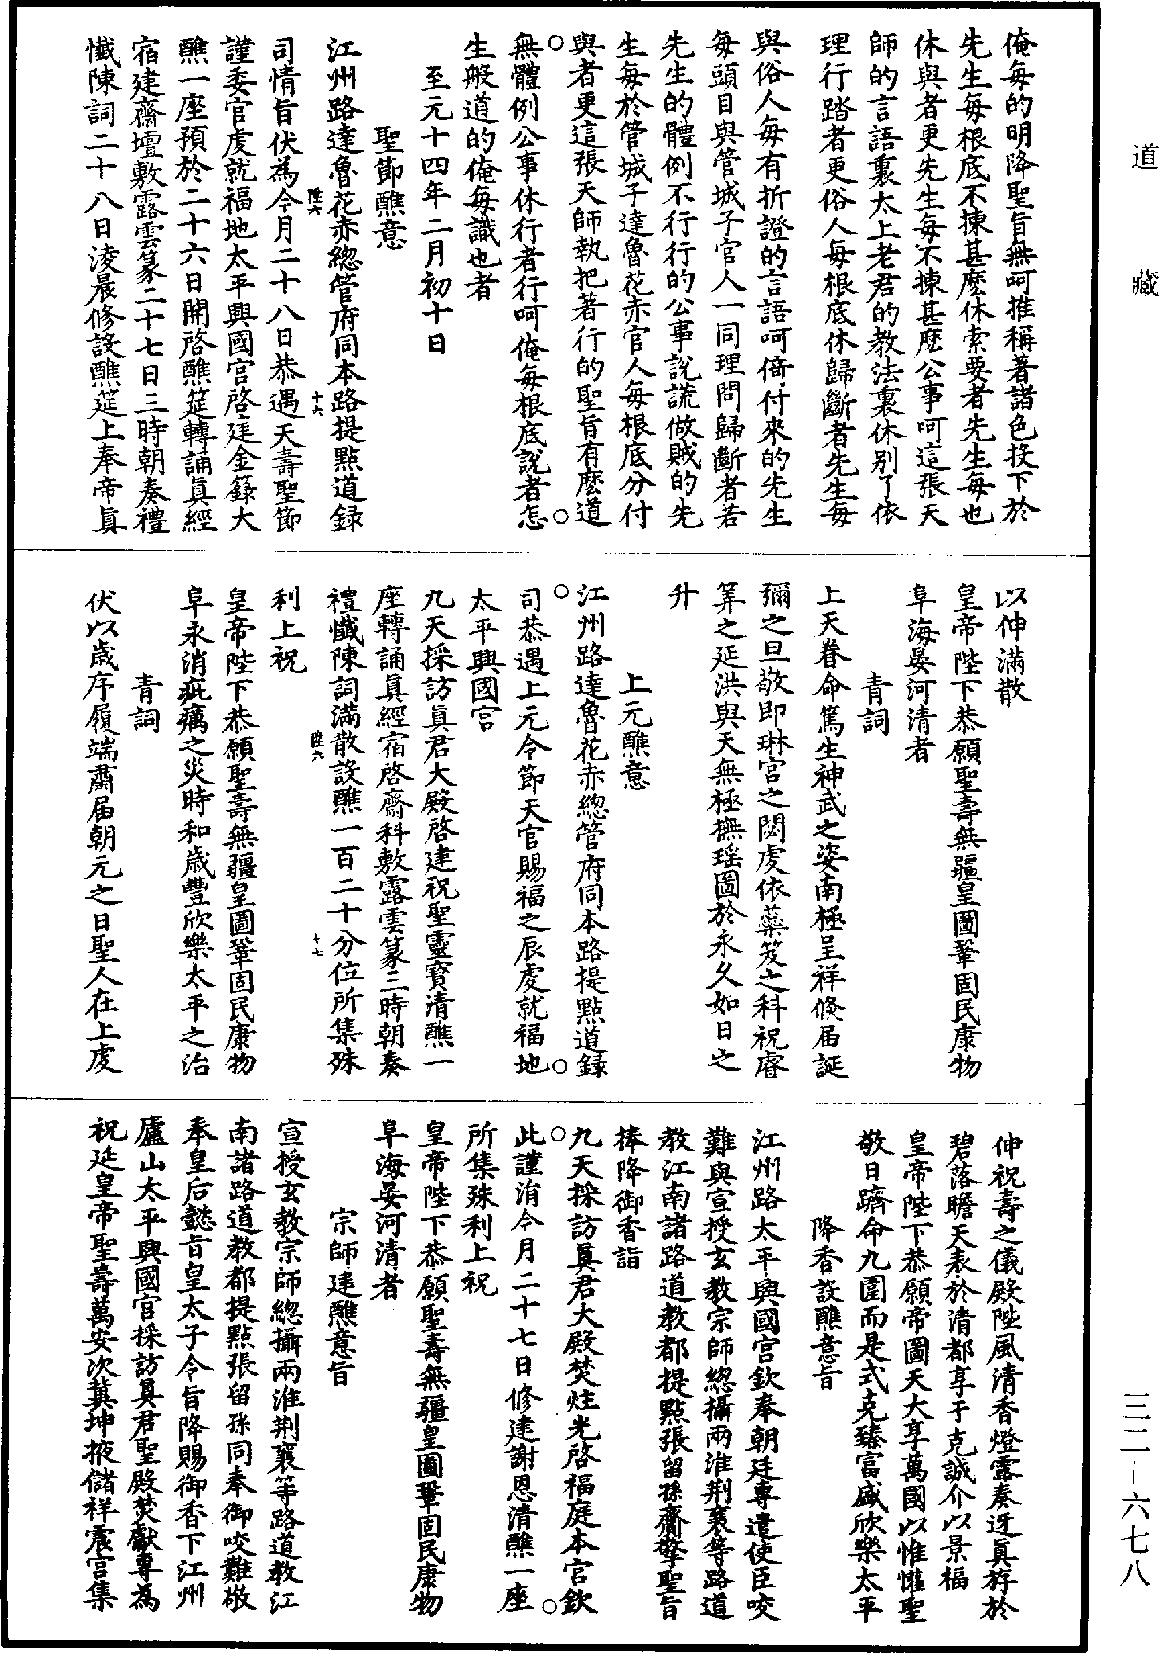 道藏
俺每的明降聖旨無呵推稱著諸色投下於
先生每根底不揀甚麼休索要者先生每也
休與者更先生每不揀甚麼公事呵這張天
師的言語裏太上老君的教法裏休別了依
理行踏者更俗人每根底休歸斷者先生每
與俗人每有折證的言語呵倚付來的先生
每頭目與管城子官人一同理問歸斷者若
先生的體例不行行的公事說謊做賊的先
生每於管城子達魯花赤官人每根底分付
與者更這張天師執把著行的聖旨有麼道
無體例公事休行者行呵俺每根底說者怎
生般道的俺每識也者
至元十四年二月初十日
聖節醮意
江州路達魯花赤總管府同本路提點道録
司情旨伏為今月二十八日恭遇天壽聖節
謹委官虔就福地太平興國宮啓建金籙大
醮一座預於二十六日開啓醮筵轉誦眞經
宿建齋壇敷露雲篆二十七日三時朝奏禮
懺陳詞二十八日淩晨修設醮筵上奉帝眞
以伸滿散
皇帝陛下恭願聖壽無疆皇圖鞏固民康物
阜海晏河清者
青詞
上天眷命篤生神武之姿南極呈祥倏届誕
彌之旦敬即琳宮之閟虔依蘂笈之科祝睿
筭之延洪與天無極撫瑶圖於永久如日之
升
上元醮意
江州路達魯花赤總管府同本路提點道録
司恭遇上元令節天官賜福之辰虔就福地
太平興國宮
九天採訪真君大殿啓建祝聖靈寶清醮一
座轉誦眞經宿啓齋科敷露雲篆三時朝奏
禮懺陳詞滿散設醮一百二十分位所集殊
利上祝
皇帝陛下恭願聖壽無疆皇圖鞏固民康物
阜永消疵癘之災時和歲豐欣樂太平之治
青詞
伏以歲序履端肅届朝元之日聖人在上虔
伸祝壽之儀殿陛風清香燈露奏迓眞斿於
碧落瞻天表於清都享于克誠介以景福
皇帝陛下恭願帝圖天大享萬國以惟懽聖
敬日躋命九圍而是式克臻富盛欣樂太平
降香設醮意旨
江州路太平興國宮欽奉朝廷專遣使臣咬
難與宣授玄教宗師總攝兩淮荆襄等路道
教江南諸路道教都提點張留孫齎擎聖旨
捧降御香詣
九天採訪眞君大殿焚炷光啓福庭本宮欽
此謹消今月二十七日修建謝恩清醮一座
所集殊利上祝
皇帝陛下恭願聖壽無疆皇圖鞏固民康物
阜海晏河清者
宗師建醮意旨
宣授玄教宗師總攝兩淮荆襄等路道教江
南諸路道教都提點張留孫同奉御咬難敬
奉皇后懿旨皇太子令旨降賜御香下江州
廬山太平興國宮採訪眞君聖殿焚獻專為
祝延皇帝聖壽萬安次冀坤掖儲祥震宮集
三二-六七八